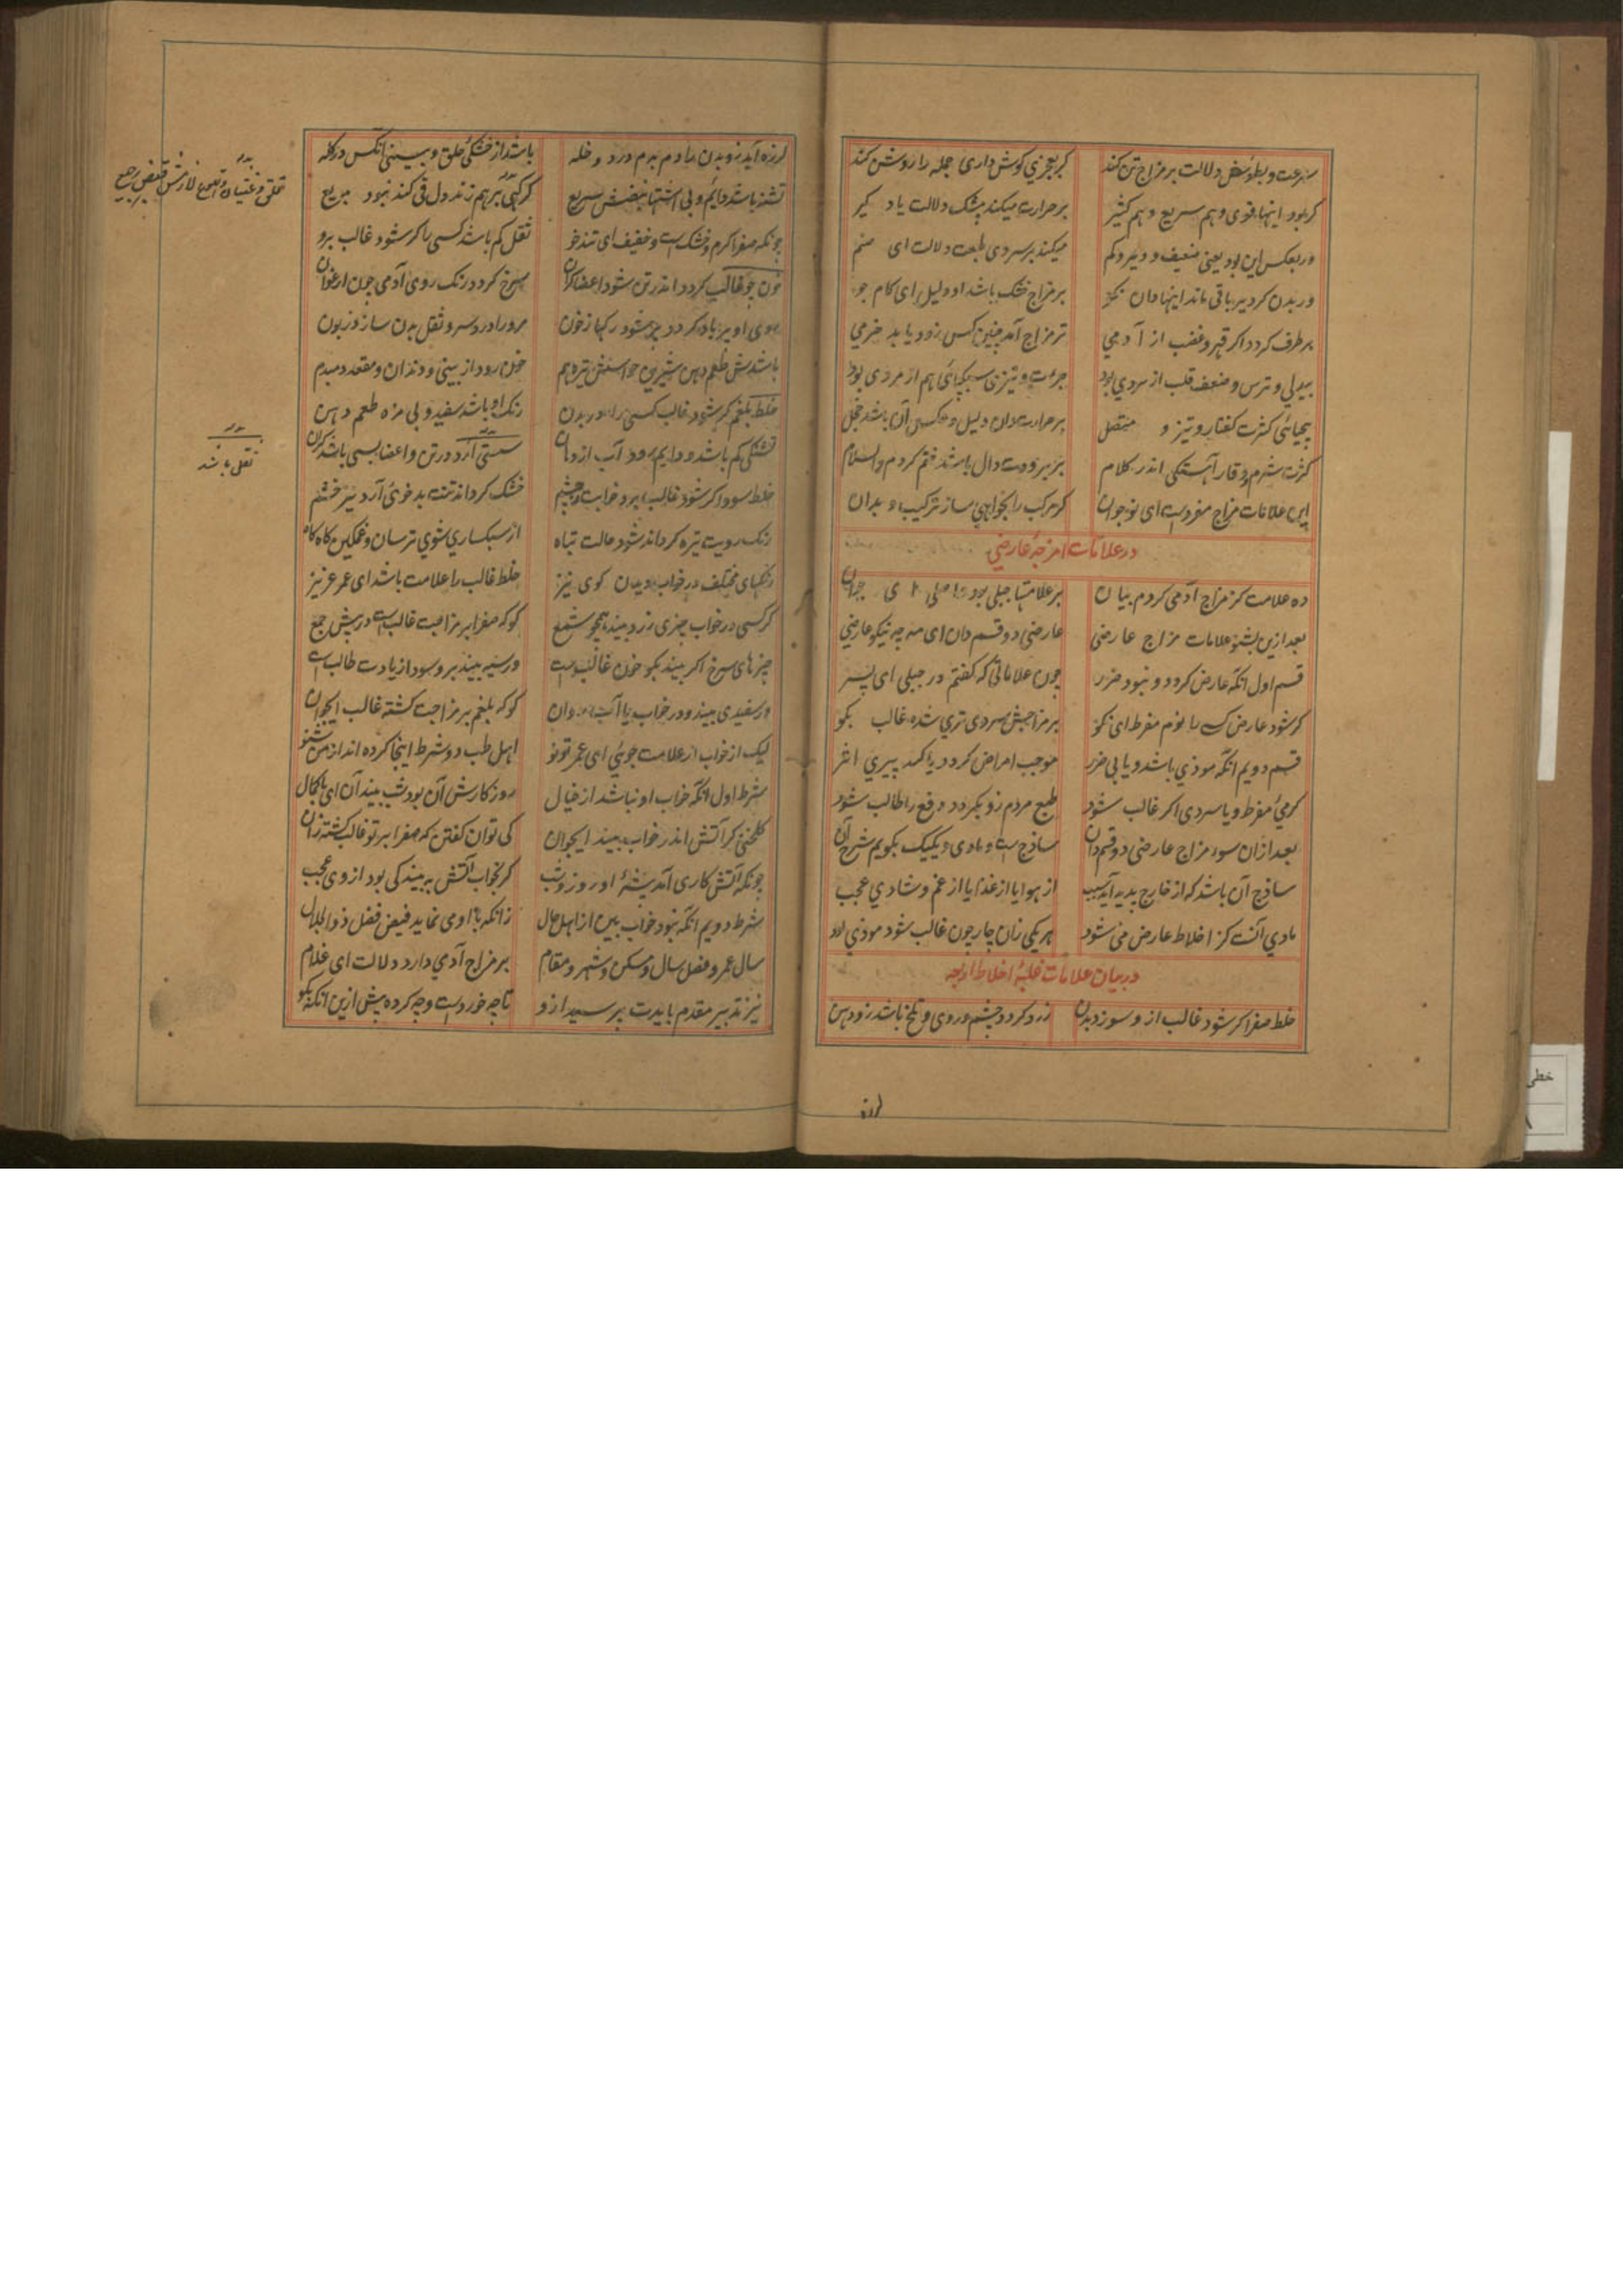 سرعت و بطؤ نبض دلالت بر مزاج تن کند کر بعجزی کوش داری جمله را روشن کند
کر بود اینها قوی و هم سریع و هم کثیر بر حرارت میکند بیشک دلالت یاد کیر
ور بعکس این بود یعنی ضعیف و دیر و کم میکند بر سردی طبعت دلالت ای صنم
ور بدن کردیر باقی ماند اینها دان نکو بر مزاج خشک باشد او دلیل ای کام جو
بر طرف کردد اکر قهر و غضب از آدمی تر مزاج آمد چنین کس زود یابد خرمی
بیدلی و ترس و ضعف قلب از سردی بود جرءت و تیزی سبکپائی هم از مردی بود
بیحیائی کثرت کفتار و تیز و منتقل بر حرارت دان دلیل و عکس آن باشد خجل
کثرت شرم و وقار آهستکی اندر کلام بر برودت دال باشد ختم کردم والسلام
این علامات مزاج مفردست ای نوجوان کر مرکب را بخواهی ساز ترکیب و بدان
در علامات امزجهٔ عارضی
ده علامت کز مزاج آدمی کردم بیان بر علامتها جبلی بود اصلی ای جوان
بعد ازین بشنو علامات مزاج عارضی عارضی دو قسم دان ای مه چه نیکو عارضی
قسم اول انکه عارض کردد و نبود ضرر چون علاماتی که کفتم در جبلی ای پسر
کر شود عارض کسی را نوم مفرط ای نکو بر مزاجش سردی تری شده غالب بکو
قسم دویم انکه موذی باشد و یا بی ضرر موجب امراض کردد یا کند پیری اثر
کرمی مفرط و یا سردی اکر غالب شود طبع مردم زو بکردد دفع را طالب شود
بعد ازان سوء مزاج عارضی دو قسم دان ساذج است و مادی و یکیک بکویم شرح آن
ساذج آن باشد که از خارج پدید آید سبب از هوا یا از غذا یا از غم و شادی عجب
مادی آنست کز اخلاط عارض می شود هر یکی زان چار چون غالب شود موذی بود
در بیان علامات غلبهٔ اخلاط اربعه
خلط صفرا کر شود غالب ازو سوزد بدن زرد کردد چشم و روی و تلخ باشد زو دهن
لرزه
لرزه آید زو بدن را دم بدم درد و خله باشد از خشکی حلق و بینی آنکس در کله
تشنه باشد دایم و بی اشتها نبضش سریع کر کهی بر هم زند دل قی کند نبود بدیع
چونکه صفرا کرم و خشک است و خفیف ای تندخو ثقل کم باشد کسی را کر شود غالب برو
خون چو غالب کردد اندر تن شود اعضا کران سرخ کردد رنک روی آدمی چون ارغوان
بوی او بر باد کردد پر شود رکها ز خون مرورا درد سر و ثقل بدن سازد زبون
باشدش طعم دهن شیرین حواسش تیره هم خون رود از بینی و دندان و مقعد دمبدم
خلط بلغم کر شود غالب کسی را در بدن رنک او باشد سفید و بی مزه طعم دهن
تشنکی کم باشد و دایم رود آب از دهان سستی آرد در تن و اعضا بسی باشد کران
خلط سودا کر شود غالب برد خوابت ز چشم خشک کرداند تنت بدخوئی آرد نیز خشم
رنک رویت تیره کرداند شود حالت تباه از سبکساری شوی ترسان و غمکین کاه کاه
رنکهای مختلف در خواب دیدن کوی نیز خلط غالب را علامت باشد ای عمر عزیز
کر کسی در خواب چیزی زرد بیند همچو شمع کو که صفرا بر مزاجت غالب است در پیش جمع
چیزهای سرخ اکر بیند بکو خون غالب است ور سیه بیند برو سودا زیادت طالب است
ور سفیدی بیند و در خواب یا آب روان کو که بلغم بر مزاجت کشته غالب ایجوان
لیک از خواب ار علامت جوئی ای عمر تو نو اهل طب دو شرط اینجا کرده اند از من شنو
شرط اول انکه خواب او نباشد از خیال روز کارش آن بود شب بیند آن ای با کمال
کلخنی کر آتش اندر خواب بیند ایجوان کی توان کفتن که صفرا بر تو غالب کشته زان
چونکه آتش کاری آمد پیشهٔ او روز و شب کر بخواب آتش ببیند کی بود از وی عجب
شرط دویم انکه نبود خواب بین از اهل حال زانکه با او می نماید فیض فضل ذوالجلال
سال عمر و فصل سال و مسکن و شهر و مقام بر مزاج آدمی دارد دلالت ای غلام
نیز تدبیر مقدم بایدت پرسید ازو تا چه خوردست و چه کرده پیش ازین انکه بکو
ثقلی باشد